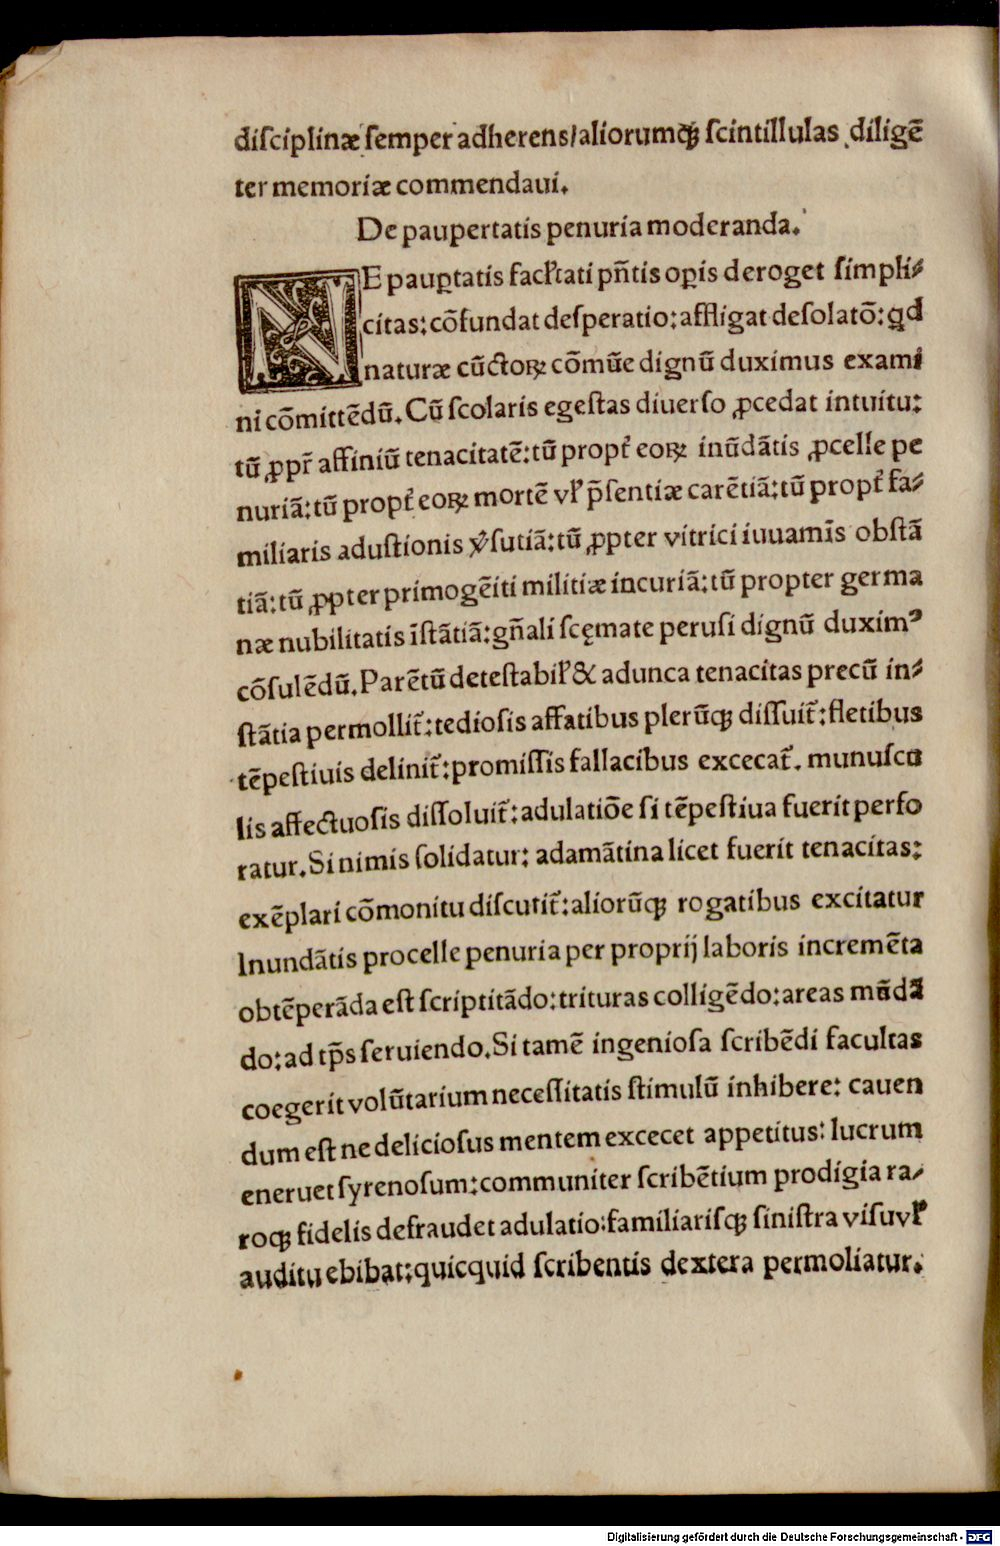 diſciplinæ ſemper adherens/aliorumꝗꝫ ſcintillulas diligē
ter memoriæ commendaui.
De paupertatis penuria moderanda.
NE paup̱tatis facl̕tati pn̄tis op̱is deroget ſimpli⸗
citas: cōfundat deſperatio: affligat deſolatō: qd
naturæ cūctoꝝ cōmūe dignū duximus exami
ni cōmittēdū. Cū ſcolaris egeſtas diuerſo ꝓcedat intuitu:
tū ꝓpr̄ affiniū tenacitatē: tū propt̕ eoꝝ inūdātis ꝓcelle pe
nuriā: tū propt̕ eoꝝ mortē vl̕ p̄ſentiæ carētiā: tū propt̕ fa⸗
miliaris aduſtionis v̕ſutiā: tū ꝓpter vitrici iuuamīs obſtā
tiā: tū ꝓpter primogēiti militiæ incuriā: tū propter germa
næ nubilitatis īſtātiā: gn̄ali ſcęmate peruſi dignū duximꝰ
cōſulēdū. Parētū deteſtabil̕ & adunca tenacitas precū in⸗
ſtātia permollit᷑: tedioſis affatibus plerūꝗꝫ diſſuit᷑: fletibus
tēpeſtiuis delinit᷑: promiſſis fallacibus excecat᷑. munuſcu
lis affectuoſis diſſoluit᷑: adulatiōe ſi tēpeſtiua fuerit perfo
ratur. Si nimis ſolidatur: adamātina licet fuerit tenacitas:
exēplari cōmonitu diſcutit᷑: aliorūꝗꝫ rogatibus excitatur
Inundātis procelle penuria per proprij laboris incremēta
obtēperāda eſt ſcriptitādo: trituras colligēdo: areas mūdā
do: ad tp̄s ſeruiendo. Si tamē ingenioſa ſcribēdi facultas
coegerit volūtarium neceſſitatis ſtimulū inhibere: cauen
dum eſt ne delicioſus mentem excecet appetitus: lucrum
eneruet ſyrenoſum: communiter ſcribētium prodigia ra⸗
roꝗꝫ fidelis defraudet adulatio: familiariſꝗꝫ ſiniſtra viſu vl̕
auditu ebibat: quicquid ſcribentis dextera permoliatur.
Digitalisierung gefördert durch die Deutsche Forschungsgemeinschaft - DFG